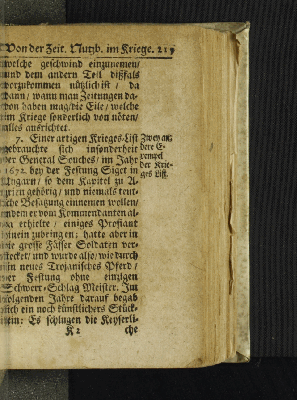 Von der Zeit. Nutzb. im Kriege. 219
welche geschwind einzunemen/
und dem andern Teil dißfals
vorzukommen nützlich ist / da
dann / wann man Zeitungen da-
von haben mag/die Eile/welche
im Kriege sonderlich von nöten/
alles ausrichtet.
7. Einer artigen Krieges-List
gebrauchte sich insonderheit
der General Souches/ im Jahr
1672. bey der Festung Siget in
Ungarn/ so dem Kapitel zu A-
grien gehörig/ und niemals teut-
sche Besatzung einnemen wollen/
indem er vom Kommendanten al-
da erhielte / einiges Profiant
hinein zubringen; hatte aber in
die grosse Fässer Soldaten ver-
stecket/ und wurde also/wie durch
ein neues Trojanisches Pferd /
der Festung ohne einzigen
Schwert-Schlag Meister. Im
folgenden Jahre darauf begab
sich ein noch künstlichers Stück-
lein: Es schlugen die Keyserli-
K 2 che
Zwey an-
dere E-
xempel
der Krie-
ges List.